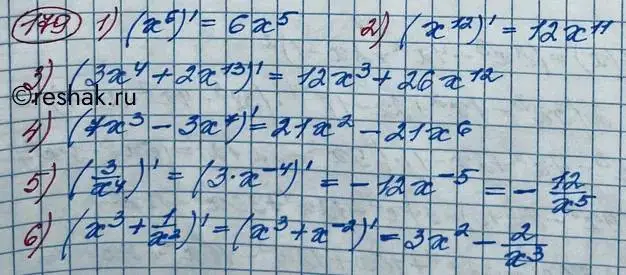 179 1) (x⁶)' = 6x⁵ 2) (x¹²)' = 12x¹¹
3) (3x⁴ + 2x¹³)' = 12x³ + 26x¹²
©reshak.ru
4) (7x³ - 3x⁷)' = 21x² - 21x⁶
5) (3/x⁴)' = (3·x⁻⁴)' = -12x⁻⁵ = -12/x⁵
6) (x³ + 1/x²)' = (x³ + x⁻²)' = 3x² - 2/x³